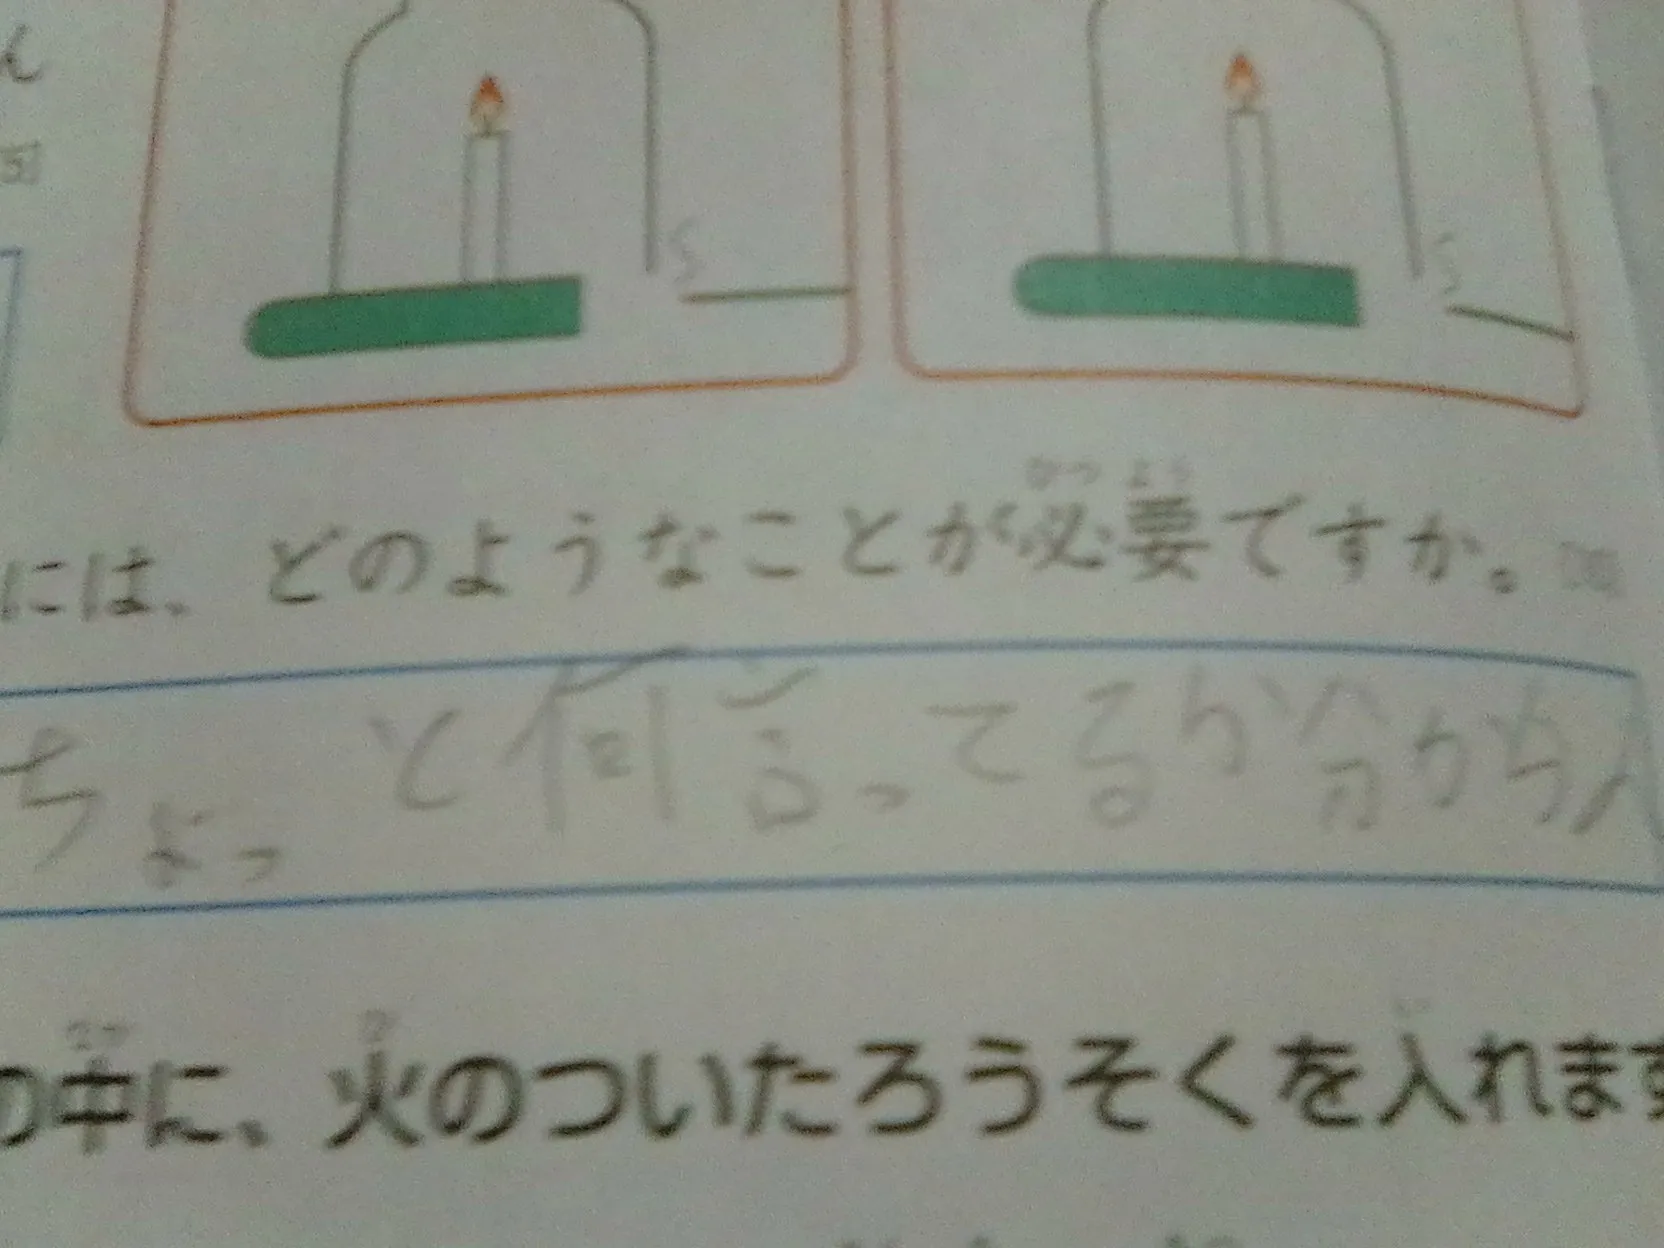 ん
には、どのようなことが必要ですか。
ひつ よう
ちょっと何言ってるか分から
の中に、火のついたろうそくを入れます